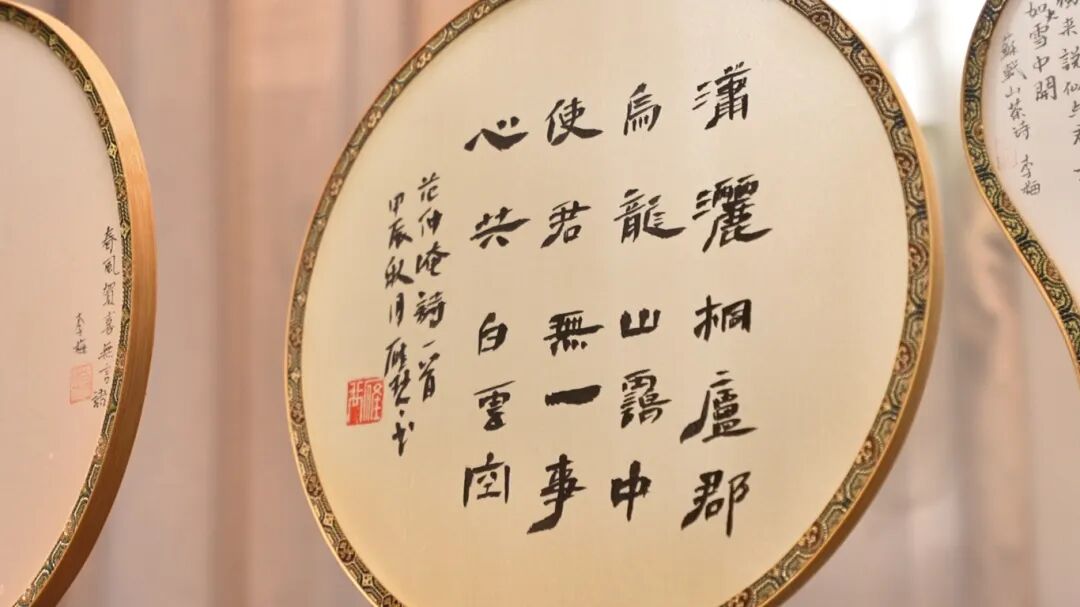 来説似与君
如火雪中開
蘇軾山茶詩 李梅
瀟灑桐廬郡
烏龍山靄中
使君無一事
心共白雲空
范仲淹詩一首
甲辰秋月
春風賀喜無言語
李梅